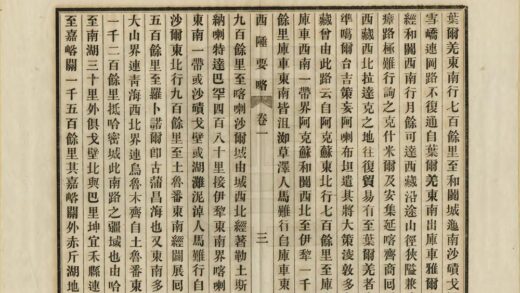 葉爾羌東南行七百餘里至和闐城迤南沙磧戈
雪嶠連岡路不復通自葉爾羌東南出庫車雅爾
經和闐西南行月餘可達西藏沿途山徑狹隘兼
瘴路極難行詢之克什米爾及安集延喀齊商回
西藏西北拉達克之地往復貿易有至葉爾羌者
準噶爾台吉策妄阿喇布坦遣其將大策淩敦多
藏曾由此路云自阿克蘇東北行七百餘里至庫
車西南一帶界阿克蘇和闐西北至伊犁一千
餘里庫車東南皆沮洳草澤人馬難行自庫車東
西陲要略
卷一
三
九百餘里至喀喇沙爾城由城西北經著勒土斯
納喇特達巴罕四百八十里接伊犁東南界喀喇
東南一帶或沙磧戈壁或湖灘泥淖人馬難行自
沙爾東北行九百餘里至土魯番東南經闢展回
五百餘里至羅卜淖爾即古蒲昌海也又東南多
大山界連青海西北界連烏魯木齊自土魯番東
一千二百餘里抵哈密城此南路之疆域也由哈
至南湖三十里外俱戈壁北與巴里坤宜禾縣連
至嘉峪關一千五百餘里其嘉峪關外赤斤湖地